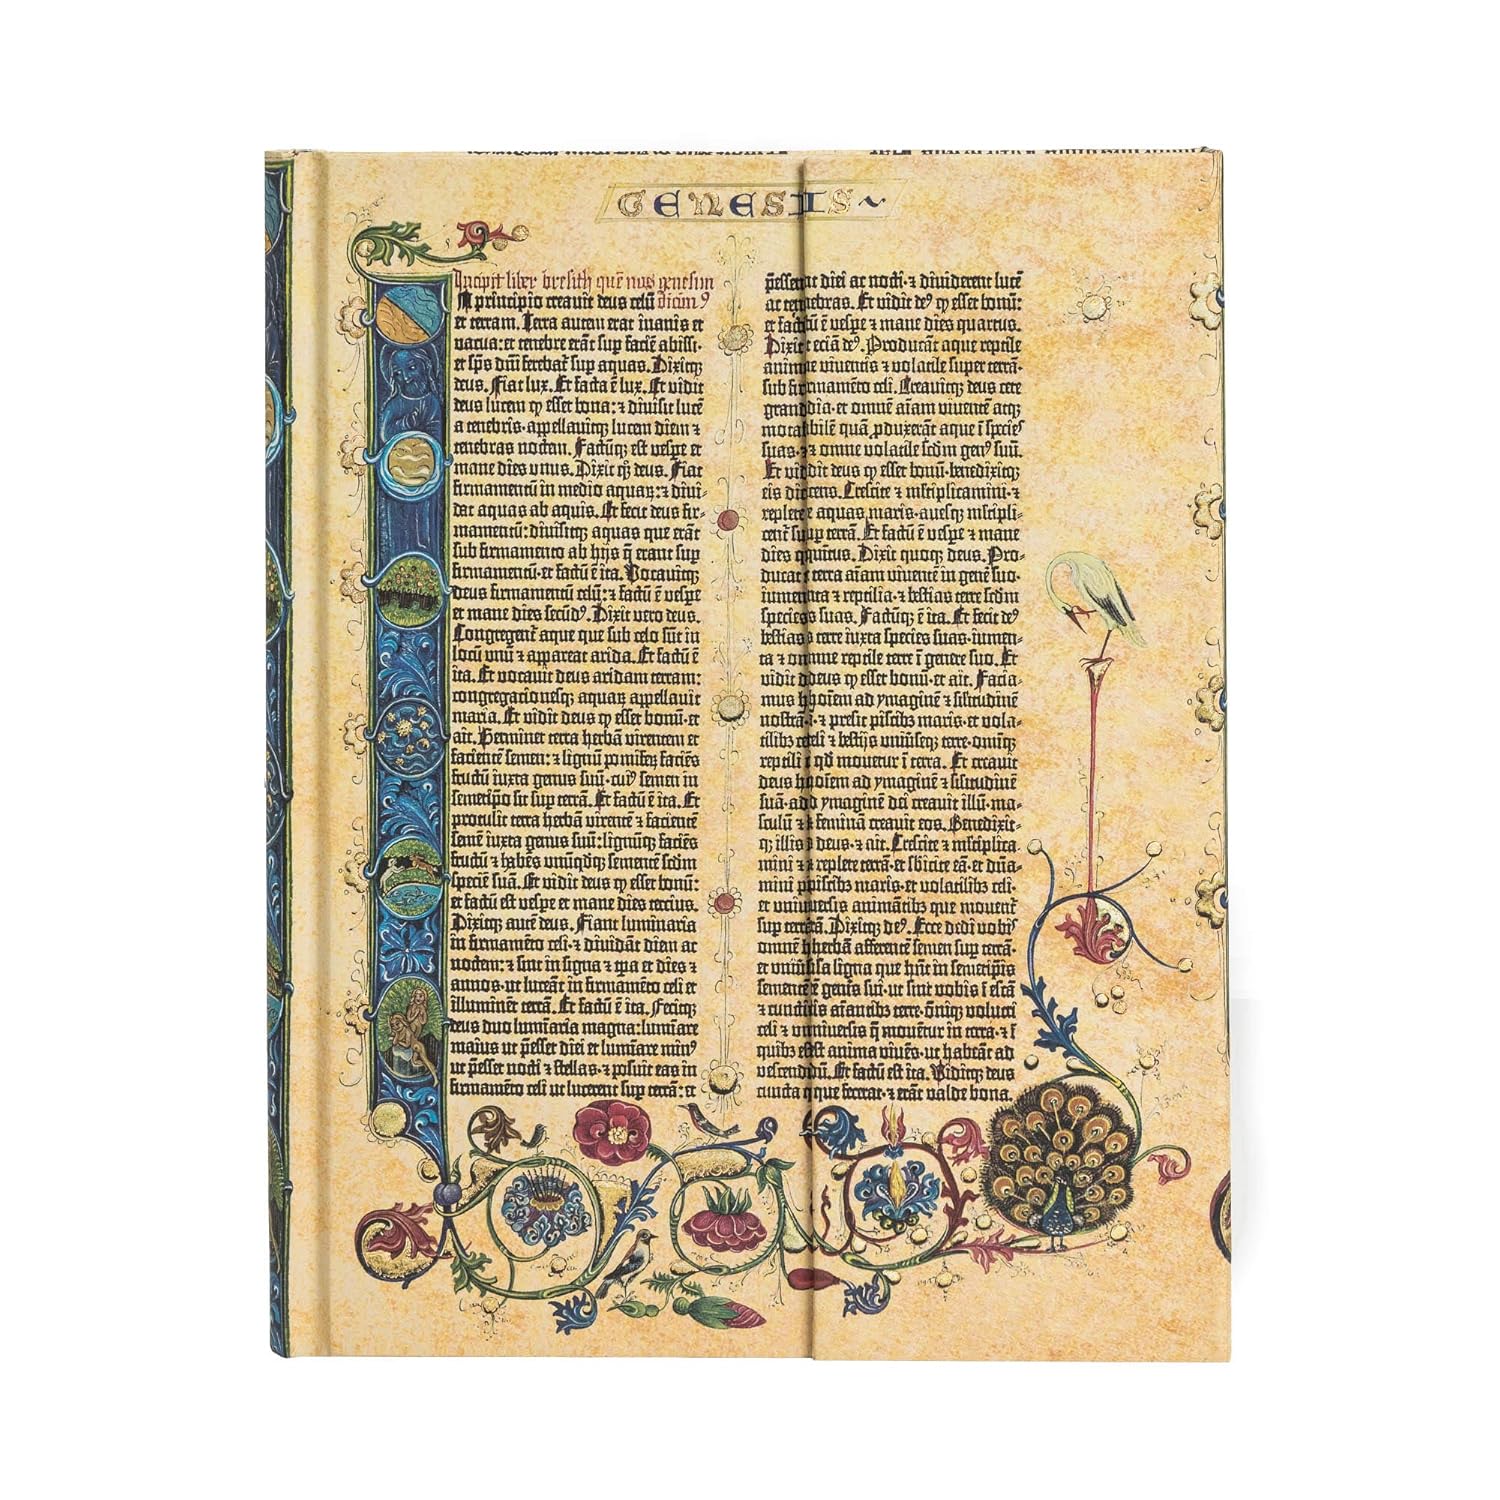 GENESIS
Incipit liber bresith quē nos genesim
In principio creavit deus celū dicim⁹
et terram. Terra autem erat inanis et
vacua: et tenebre erāt sup faciē abissi·
et sp̄s dn̄i ferebat̄ sup aquas. Dixitq̄
deus. Fiat lux. Et facta ē lux. Et vidit
deus lucem ꝙ esset bona: ⁊ divisit lucē
a tenebris· appellavitq̄ lucem diem ⁊
tenebras noctem. Factūq̄ est vespe et
mane dies unus. Dixit qꝫ deus. Fiat
firmamentū in medio aquaꝝ: ⁊ divi-
dat aquas ab aquis. Et fecit deus fir-
mamentū: divisitq̄ aquas que erāt
sub firmamento ab hijs q̄ erant sup
firmamentū· et factū ē ita. Vocavitq̄
deus firmamentū celū: ⁊ factū ē vespe
et mane dies secūd⁹. Dixit vero deus.
Congregent̄ aque que sub celo sūt in
locū unū ⁊ appareat arida. Et factū ē
ita. Et vocavit deus aridam terram:
congregacionesq̄ aquaꝝ appellavit
maria. Et vidit deus ꝙ esset bonū· et
ait. Germinet terra herbā virentem et
facientē semen: ⁊ lignū pomifeꝝ faciēs
fructū iuxta genus suū· cui⁹ semen in
semetipo sit sup terrā. Et factū ē ita. Et
protulit terra herbā virentē ⁊ facientē
semē iuxta genus suū: lignūq̄ faciēs
fructū ⁊ habēs unūqdq̄ sementē scdm
speciē suā. Et vidit deus ꝙ esset bonū:
et factū est vespe et mane dies tercius.
Dixitq̄ autē deus. Fiant luminaria
in firmamēto celi· ⁊ dividāt diem ac
noctem: ⁊ sint in signa ⁊ tp̄a et dies ⁊
annos· ut luceāt in firmamēto celi et
illuminēt terrā. Et factū ē ita. Fecitq̄
deus duo lumīaria magna: lumīare
maius ut p̄esset diei et lumīare min⁹
ut p̄esset nocti ⁊ stellas· ⁊ posuit eas in
firmamēto celi ut lucerent sup terrā: et
p̄essent diei ac nocti· ⁊ dividerent lucē
ac tenebras. Et vidit de⁹ ꝙ esset bonū:
et factū ē vespe ⁊ mane dies quartus.
Dixit eciā de⁹. Producāt aque reptile
anime viventis ⁊ volatile super terrā·
sub firmamēto celi. Creavitq̄ deus cete
grandia· et omnē aīam viventē atq̄
motabilē quā pduxerāt aque ī species
suas· ⁊ omne volatile scdm gen⁹ suū.
Et vidit deus ꝙ esset bonū· benedixitq̄
eis dicens. Crescite ⁊ mltiplicamini· ⁊
replete aquas maris· avesq̄ mltipli-
cent̄ sup terrā. Et factū ē vespe ⁊ mane
dies quintus. Dixit quoq̄ deus. Pro-
ducat terra aīam viventē in gene suo·
iumenta ⁊ reptilia· ⁊ bestias terre scdm
species suas. Factūq̄ ē ita. Et fecit de⁹
bestias terre iuxta species suas· iumen-
ta ⁊ omne reptile terre ī genere suo. Et
vidit deus ꝙ esset bonū· et ait. Facia-
mus hoīem ad ymaginē ⁊ silitudinē
nostrā· ⁊ presit piscibꝫ maris· et vola-
tilibꝫ celi ⁊ bestijs univseq̄ terre· omīq̄
reptili qd movetur ī terra. Et creavit
deus hoīem ad ymaginē ⁊ silitudinē
suā· ad ymaginē dei creavit illū· ma-
sculū ⁊ feminā creavit eos. Benedixit-
q̄ illis deus· ⁊ ait. Crescite ⁊ mltiplica-
mini ⁊ replete terrā· et sbicite eā· et dn̄a-
mini piscibꝫ maris· et volatilibꝫ celi·
et universis animātibꝫ que movent̄
sup terrā. Dixitq̄ de⁹. Ecce dedi vobis
omnē herbā afferentē semen sup terrā·
et univsa ligna que hn̄t in semetipīs
sementē genēs sui· ut sint vobis ī escā
⁊ cunctis aīantibꝫ terre· oīnīq̄ volucri
celi ⁊ universis q̄ movētur in terra· ⁊ ī
quibꝫ est anima vivēs· ut habeāt ad
vescendū. Et factū est ita. Viditq̄ deus
cuncta que fecerat· ⁊ erāt valde bona.